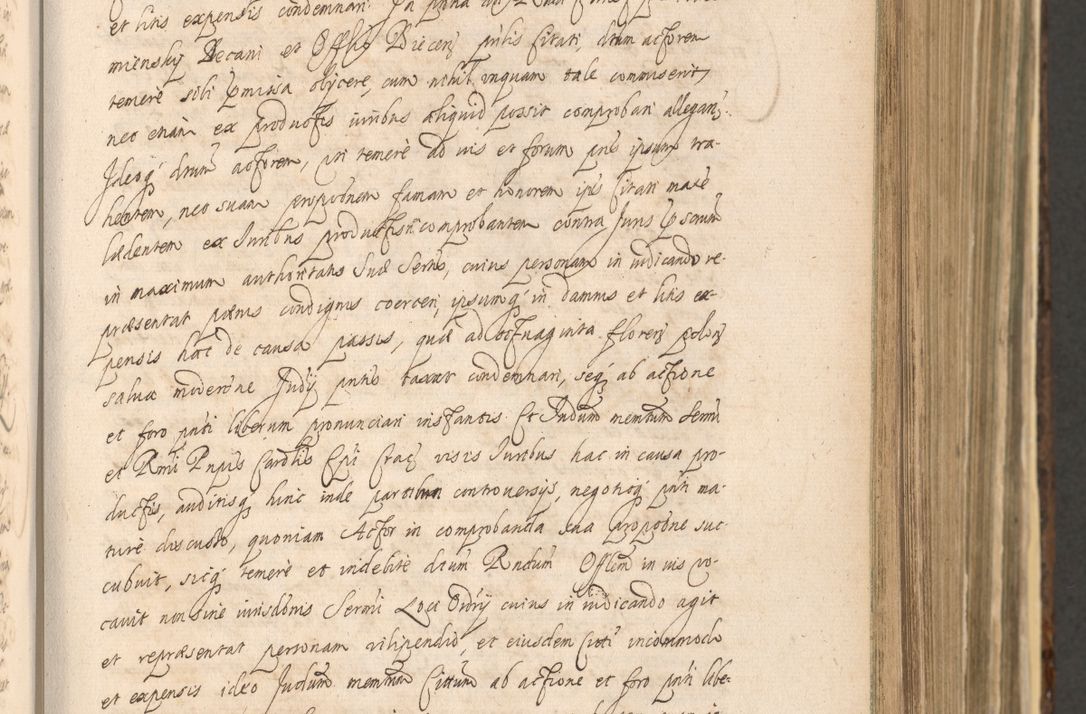 et litis expensis condemnari. In
miensky Decani et Offlis Dieceñ pntis Citati, dtum actorem
temerè sibi pmissa obijcere, cum nihil unquam tale commiserit,
nec etiam ex productis iuribus aliquid possit comprobari allegañ.
Ideoq dtum actorem, uti temerè ad ius et forum pns ipsum tra-
hentem, nec suam propoõnem famam et honorem ipsi Citati malè
lædentem ex Iuribus productis comprobantem contra Iuris pscrum
in maximum authoritatis Suæ Sertis, cuius personam in iudicando re-
præsentat pænis condignis coerceri, ipsumq in damnis et litis ex-
pensis hac de causa passis, quæ ad octuaginta florenos poloñ
salua moderõne Iudij pntis taxat condemnari, seq ab actione
et foro pnti liberum pronunciari instantis. Et Iudium memtum Sermi
et Rmi Pnpis Caroli Epi Crac visis Iuribus hac in causa pro-
ductis, auditisq hinc inde partibus controversijs, negotioq pnti ma-
turè discusso, quoniam Actor in comprobanda sua propoõne suc-
cubuit, sicq temerè et indebitè dtum Rndum Offlem in ius vo-
cavit non sine iurisdõnis Sermi Loci Ordrij cuius in iudicando agit
et repræsentat personam vilipendio, et eiusdem Citti incommodo
et expensis ideo Iudium memtum Cittum ab actione et foro pnti libe-